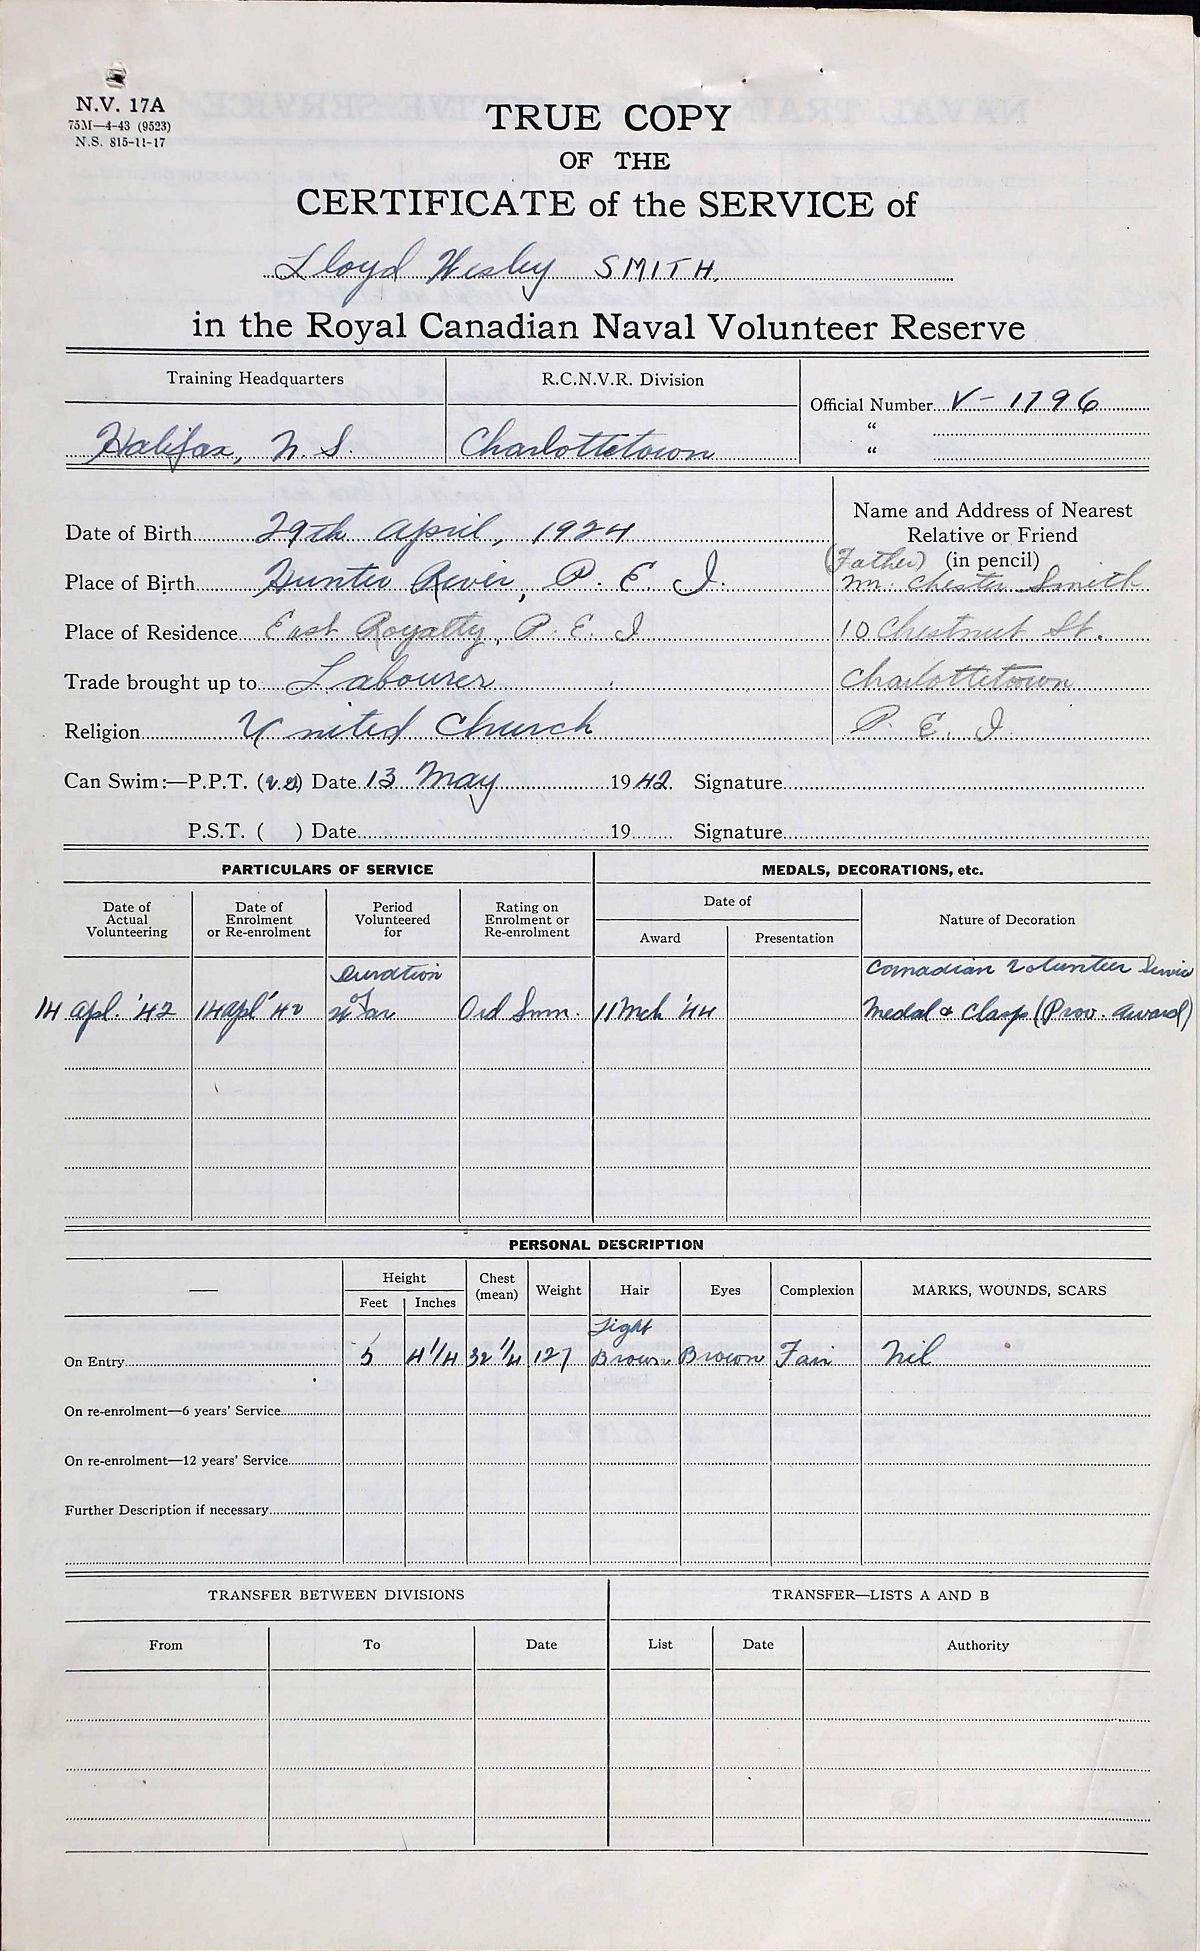 N.V. 17A
75M—4-43 (9523)
N.S. 815-11-17
TRUE COPY
OF THE
CERTIFICATE of the SERVICE of
Lloyd Wesley SMITH.
in the Royal Canadian Naval Volunteer Reserve
Training Headquarters
R.C.N.V.R. Division
Official Number V- 1796
"
"
Halifax, N.S.
Charlottetown
Date of Birth 29th April, 1924
Place of Birth Hunter River, P. E. I.
Place of Residence East Royalty, P. E. I
Trade brought up to Labourer
Religion United Church
Name and Address of Nearest
Relative or Friend
(Father) (in pencil)
Mr. Chester Smith
10 Chestnut St.
Charlottetown
P. E. I.
Can Swim:—P.P.T. ( ) Date 13 May 1942 Signature
P.S.T. ( ) Date 19 Signature
PARTICULARS OF SERVICE
MEDALS, DECORATIONS, etc.
Date of
Actual
Volunteering
Date of
Enrolment
or Re-enrolment
Period
Volunteered
for
Rating on
Enrolment or
Re-enrolment
Date of
Award
Presentation
Nature of Decoration
14 Apl. '42
14 Apl '42
Duration
of
War
Ord Smn.
11 Mch '44
Canadian Volunteer Service
Medal & Clasp (Prov. Award)
PERSONAL DESCRIPTION
—
Height
Feet
Inches
Chest
(mean)
Weight
Hair
Eyes
Complexion
MARKS, WOUNDS, SCARS
On Entry 5 4 1/4 32 1/4 127 Light Brown Brown Fair Nil
On re-enrolment—6 years' Service
On re-enrolment—12 years' Service
Further Description if necessary
TRANSFER BETWEEN DIVISIONS
TRANSFER—LISTS A AND B
From
To
Date
List
Date
Authority